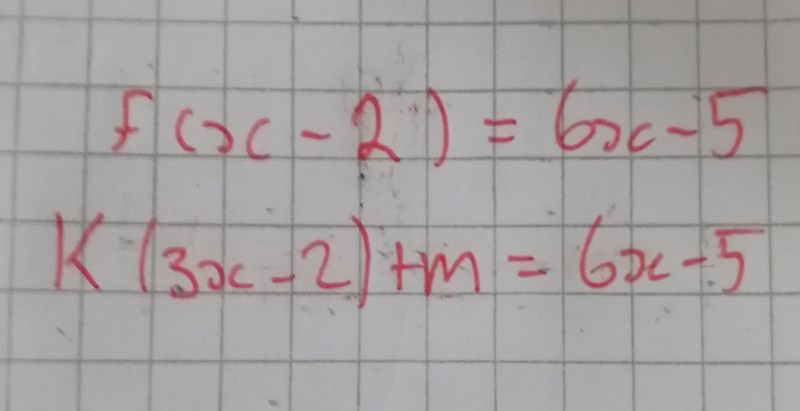 f(x-2) = 6x-5
K(3x-2)+m = 6x-5